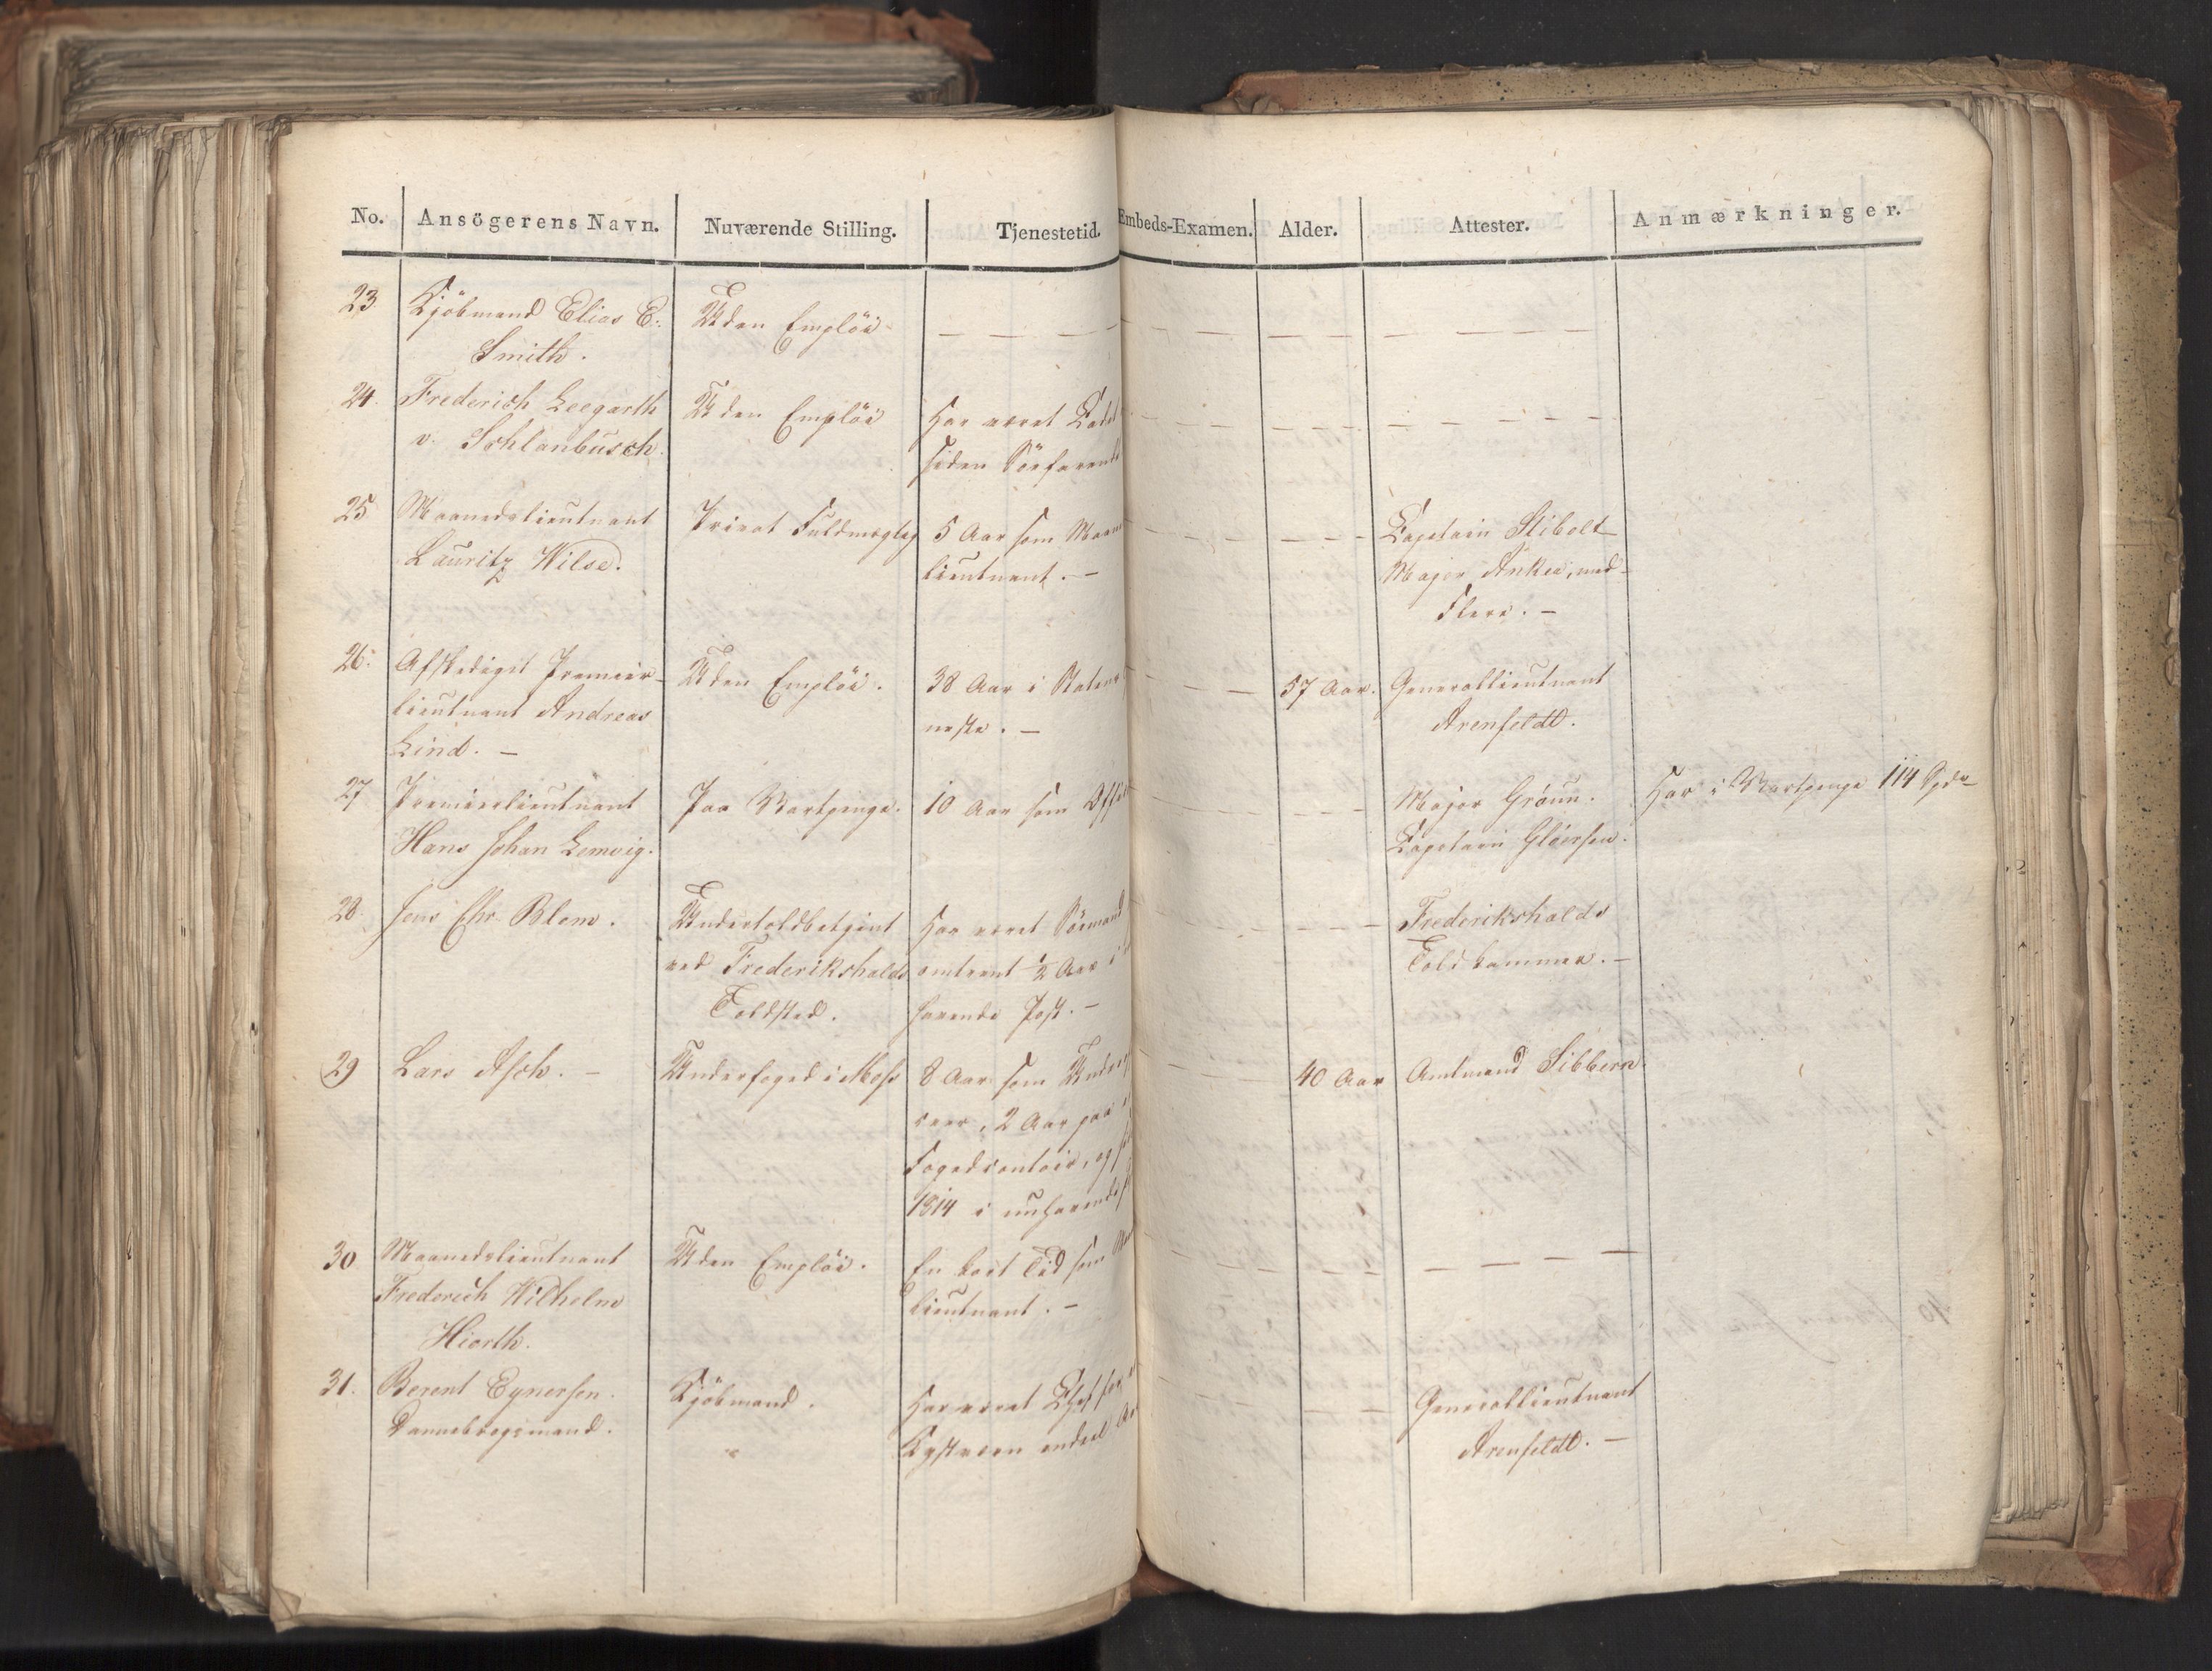 No. Ansögerens Navn. Nuværende Stilling. Tjenestetid. Embeds-Examen. Alder. Attester. Anmærkninger.
23. Kjöbmand Elias E. Uden Emplöi
Smith.
24. Frederich Leegarth Uden Emplöi Har været
v. Schlanbusch. siden Söefarende
25 Maanedslieutnant Privat Fuldmægtig 5 Aar som Maan Capitain Stibolt
Lauritz Wilse. lieutnant. Major Anker, med
Flere.
26. Afskediget Premier- Uden Emplöi. 38 Aar i Statens 57 Aar. Generallieutnant
lieutnant Andreas neste. Arenfeldt.
Lind.
27 Premierlieutnant Paa Vartpenge. 10 Aar som Offi Major Gräun. Har i Vartpenge 114 Spd
Hans Johan Lemvig. Capitain Glöersen.
28. Jens Chr. Blom. Undertoldbetjent Har været Söemand Frederikshalds
ved Frederikshalds omtrent ½ Aar i Toldkammer.
Toldsted. havende Post.
29 Lars Asch. Underfoged i Moss 8 Aar som Under 40 Aar Amtmand Sibbern.
2 Aar paa
Fogedcontoir, og
1814 i nuhavende
30 Maanedslieutnant Uden Emplöi. En kort Tid som
Frederich Wilhelm lieutnant.
Hiorth.
31. Berent Eynersen. Kjöbmand. Har været Chef for Generallieutnant
Dannebrogsmand. " Kystværn endeel Arenfeldt.